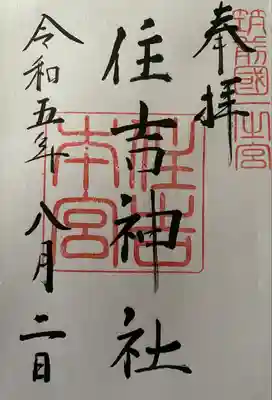 筑前國一之宮
奉拝
住吉神社
住吉本宮
令和五年
八月二日